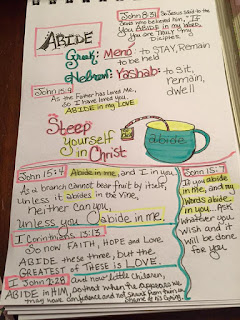 John 8:31
So Jesus said to the
Jews who believed him, "If
you ABIDE in my Word,
you are truly my
disciples.
ABIDE
Greek: Menó to STAY, Remain
to be held
Hebrew: Yashab: to sit,
remain,
dwell
John 15:9
As the Father has Loved Me,
so I have loved you.
ABIDE in my Love.
Steep
yourself
in
Christ
abide
John 15:4
Abide in me, and I in you
As a branch cannot bear fruit by itself,
unless it abides in the Vine,
neither can you,
unless you abide in me.
John 15:7
If you abide
in me, and my
words abide
in you, Ask
whatever you
wish and it
will be done
for you
1 Corinthians 13:13
So now FAITH, HOPE and Love
ABIDE these three, but the
GREATEST of These is LOVE.
1 John 2:28
And now little children,
ABIDE in HIM, so that when He appears we
may have confidence and not shrink from Him in
shame at His coming.